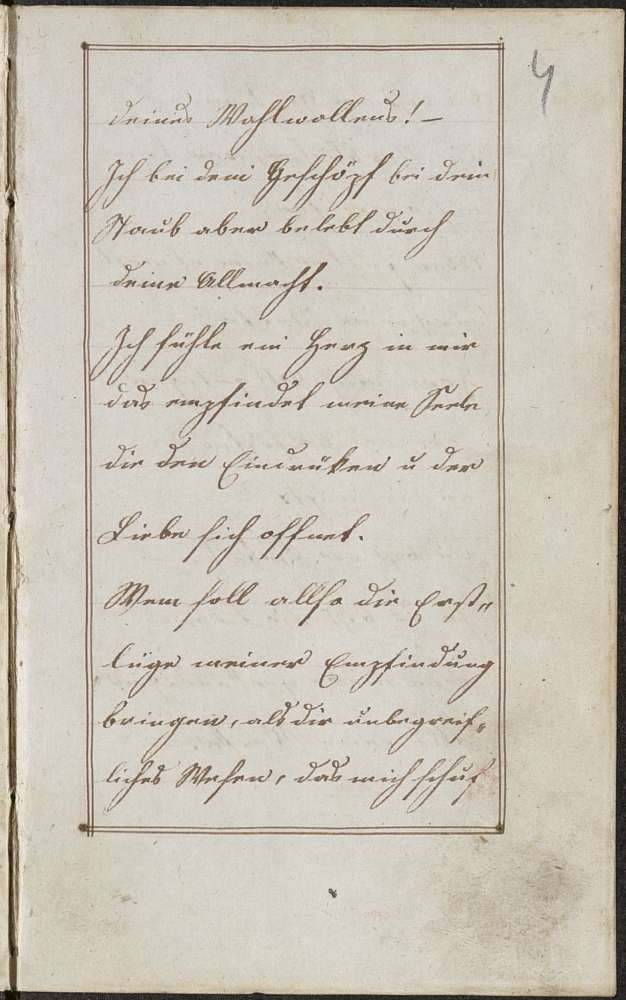 4
deines Wohlwollens! –
Ich bei dein Geschöpf bei dein
Staub aber belebt durch
deine Allmacht.
Ich fühle ein Herz in mir
das empfindet meine Seele
die den Eindrüken u der
Liebe sich offnet.
Wem soll allso die Erst„
lüge meiner Empfindung
bringen, als dir unbegreif„
liches Wesen, das mich schuf